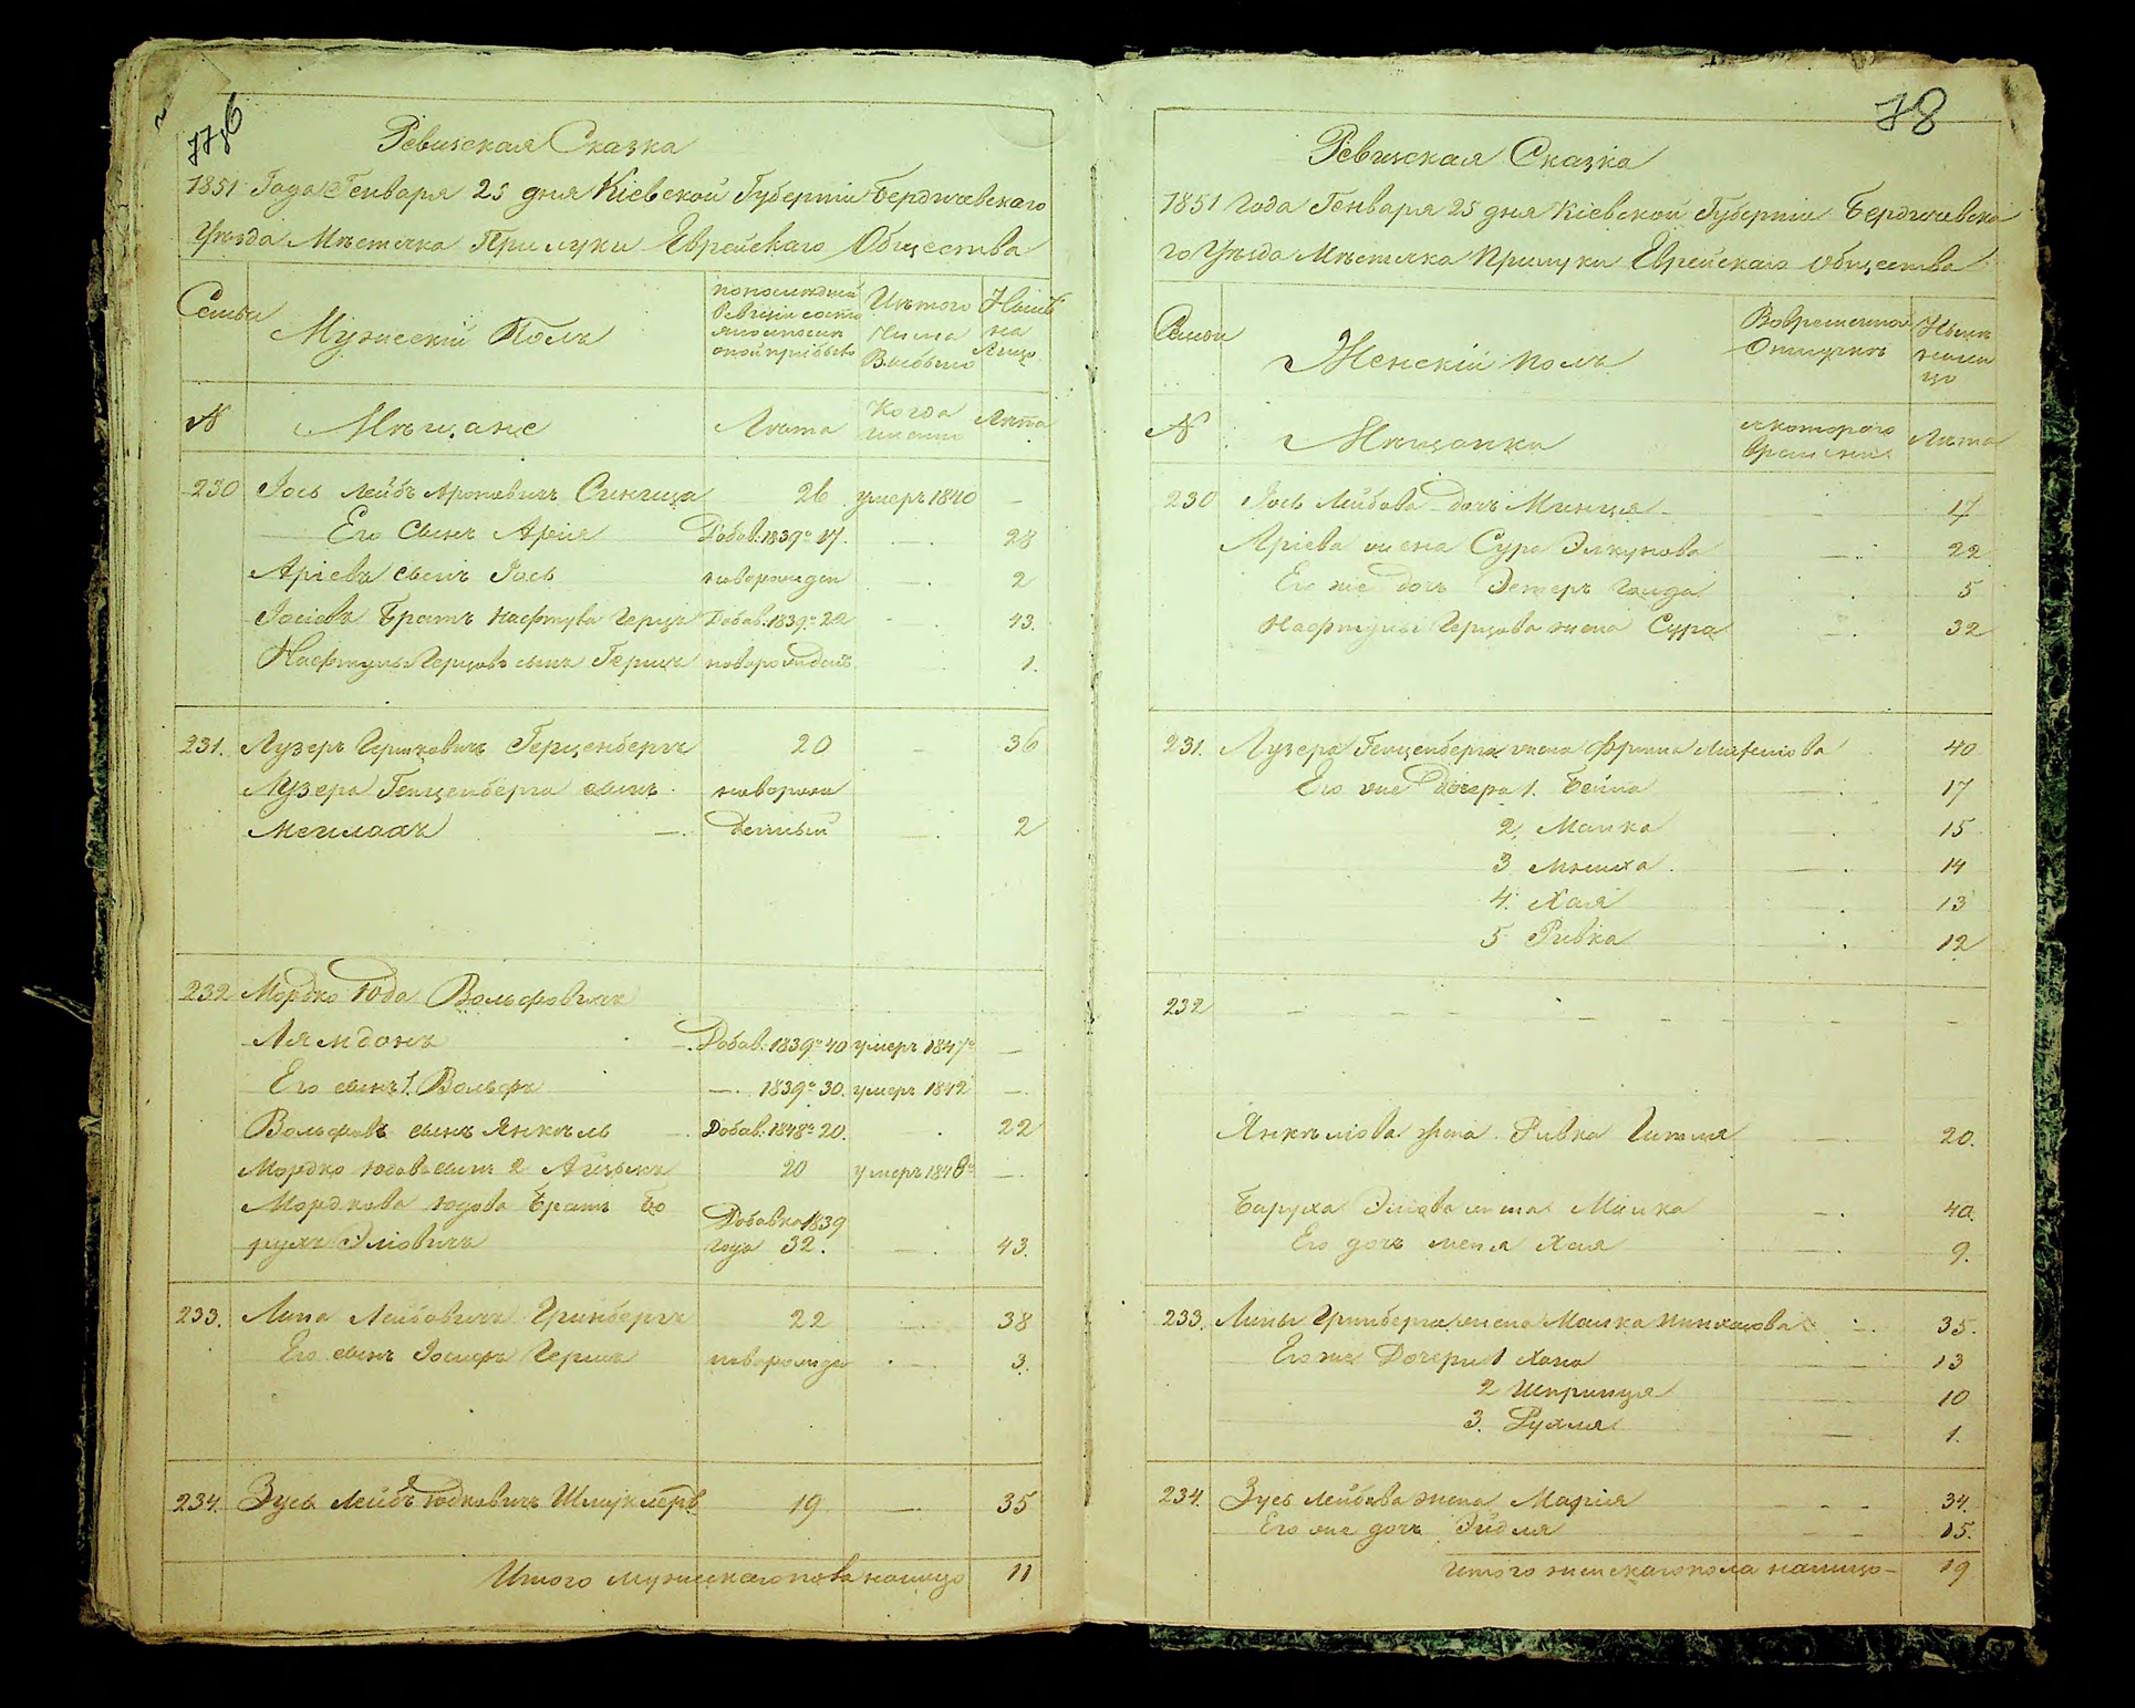 776
Ревизская Сказка
1851 Года Генваря 25 дня Кіевской Губерніи Бердичевскаго
Уѣзда Мѣстечка Прилуки Еврейскаго Общества
Семьи
Мужескій Полъ
по последней Ревизіи состояло и после оной прибыло
Изъ того Числа Выбыло
Нынѣ на Лицо
№
Мѣщане
Лѣта
Когда именно
Лѣта
230 Іось Лейбъ Ароновичъ 26 умеръ 1840 —
Его Сынъ Арія Добав. 1839го 17. — 28
Аріевъ сынъ Іось новорожден — 2
Іосіовъ Братъ Нафтула Герцъ Добав. 1839го 22 — 43.
Нафтулы Герцовъ сынъ Гершъ новорожден — 1.
231. Лузеръ Гершковичъ Герценбергъ 20 — 36
Лузера Генценберга сынъ новорож
денный — 2
232 Мордко Юда Вольфовичъ
Лямдонъ — Добав. 1839го 40 умеръ 1847го —
Его сынъ 1. Вольфъ — 1839го 30. умеръ 1842 —
Вольфовъ сынъ Янкель — Добав. 1848го 20. — 22
Мордко Юдовъ сынъ 2 Айзыкъ 20 умеръ 1848го —
Мордкова Юдова Братъ Бо
рухъ Эліовичъ Добавка 1839 года 32. — 43.
233. Липа Лейбовичъ Гринбергъ 22 — 38
Его сынъ Іосифъ Гершъ новорожде — 3.
234. Зусь Лейбъ Юдковичъ 19 — 35
Итого мужескаго пола налицо 11
78
Ревизская Сказка
1851 Года Генваря 25 дня Кіевской Губерніи Бердичевска
го Уѣзда Мѣстечка Прилуки Еврейскаго Общества
Семьи
Женскій полъ
Во временной Отлучкѣ
Нынѣ на лицо
№
Мѣщанки
съ котораго времени
Лѣта
230 Іось Лейбова дочь Минця — 17
Аріева жена Сура — 22
Его же дочь Эстеръ — 5
Нафтулы Герцова жена Сура — 32
231. Лузера Генценберга жена Фрима 40
Его же Дочери 1. Бейла — 17
2. Малка — 15
3 — 14
4. Хая — 13
5 Ривка 12
232 — — — — — — — — —
Янкеліова жена Ривка Гитля — 20.
Баруха Эліова жена Малка — 40.
Его дочь Хая — 9.
233. Липы Гринберга жена Малка Пинхасова — 35.
Его же Дочери 1 Хана — 13
2 Шпринця 10
3. Рухля — 1.
234. Зусь Лейбова жена Марія — 34.
Его же дочь Эйдля — 15.
Итого женскаго пола налицо — 19